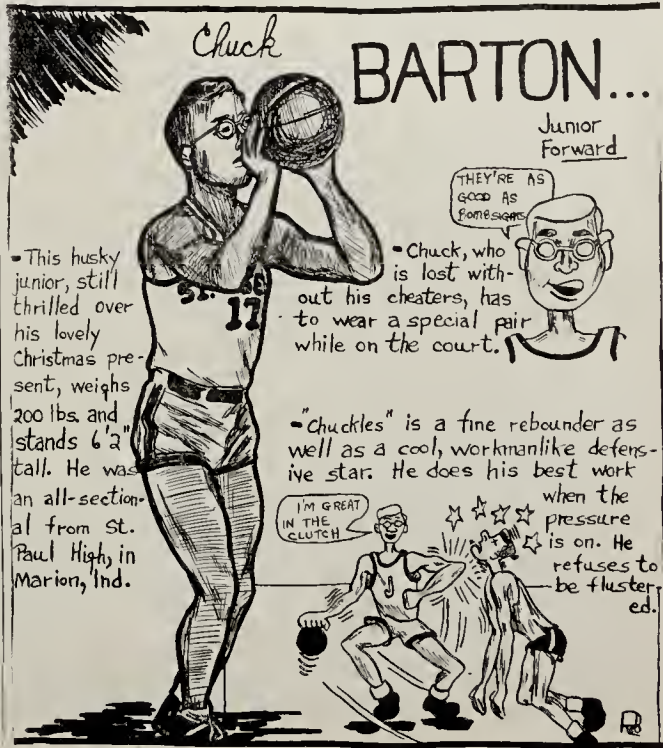 Chuck
BARTON...
Junior
Forward
THEY'RE AS
GOOD AS
BOMBSIGHTS
-This husky
junior, still
thrilled over
his lovely
Christmas pre-
sent, weighs
200 lbs. and
stands 6'2"
tall. He was
an all-section-
al from St.
Paul High, in
Marion, Ind.
-Chuck, who
is lost with-
out his cheaters, has
to wear a special pair
while on the court.
ST.
17
-"Chuckles" is a fine rebounder as
well as a cool, workmanlike defens-
ive star. He does his best work
when the
pressure
is on. He
refuses to
be fluster-
ed.
I'M GREAT
IN THE
CLUTCH
J